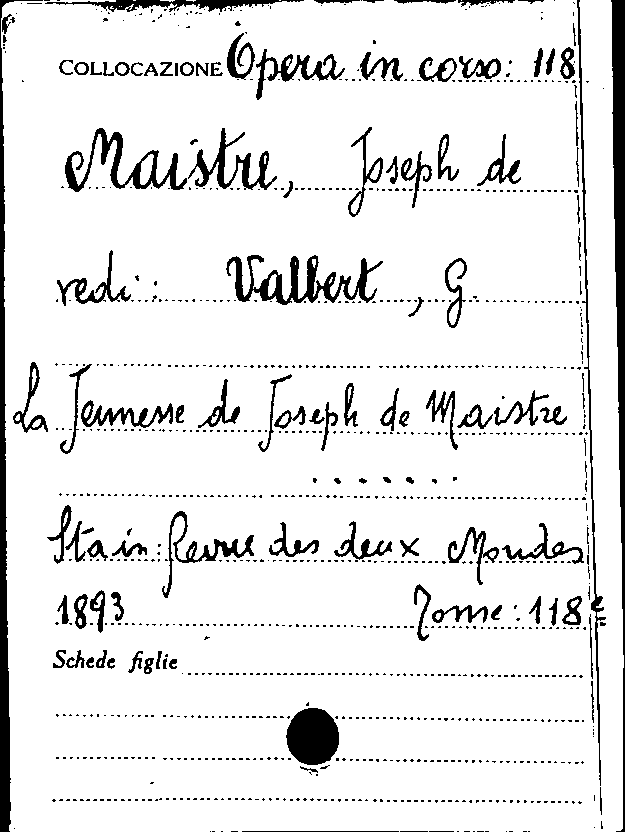 COLLOCAZIONE Opera in corso: 118
Maistre, Joseph de
vedi: Valbert, G.
La Jeunesse de Joseph de Maistre
.......
Sta in: Revue des deux Mondes
1893 Tome: 118e
Schede figlie